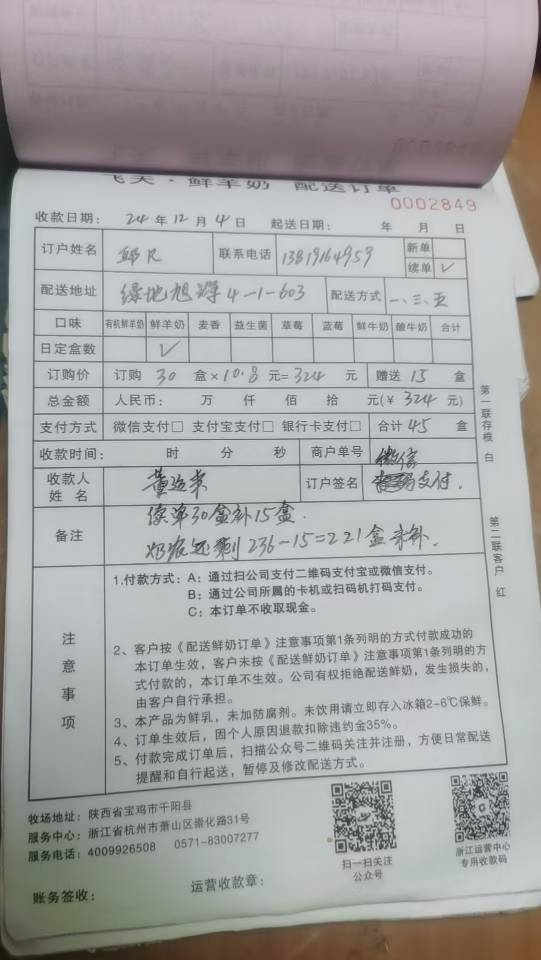 飞天·鲜羊奶 配送订单
0002849
收款日期： 24 年 12 月 4 日 起送日期： 年 月 日
订户姓名 联系电话 13819164959 新单
续单 ✓
配送地址 绿地旭辉 4-1-603 配送方式 一、三、五
口味 有机鲜羊奶 鲜羊奶 麦香 益生菌 草莓 蓝莓 鲜牛奶 酸牛奶 合计
日定盒数 ✓
订购价 订购 30 盒×10.8 元= 324 元 赠送 15 盒
总金额 人民币： 万 仟 佰 拾 元(￥ 324 元)
支付方式 微信支付□ 支付宝支付□ 银行卡支付□ 合计 45 盒
收款时间： 时 分 秒 商户单号 微信
收款人姓名 订户签名 支付.
备注 续单30盒补15盒.
236-15=221盒未补.
注意事项
1.付款方式：A：通过扫公司支付二维码支付宝或微信支付。
B：通过公司所属的卡机或扫码机打码支付。
C：本订单不收取现金。
2、客户按《配送鲜奶订单》注意事项第1条列明的方式付款成功的
本订单生效，客户未按《配送鲜奶订单》注意事项第1条列明的方
式付款的，本订单不生效。公司有权拒绝配送鲜奶，发生损失的，
由客户自行承担。
3、本产品为鲜乳，未加防腐剂。未饮用请立即存入冰箱2-6℃保鲜。
4、订单生效后，因个人原因退款扣除违约金35%。
5、付款完成订单后，扫描公众号二维码关注并注册，方便日常配送
提醒和自行起送，暂停及修改配送方式。
第一联存根 白
第二联客户 红
牧场地址：陕西省宝鸡市千阳县
服务中心：浙江省杭州市萧山区崇化路31号
服务电话：4009926508 0571-83007277
扫一扫关注
公众号
浙江运营中心
专用收款码
账务签收： 运营收款章：